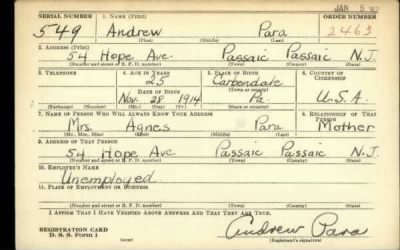 JAN 5 '42
SERIAL NUMBER 1. NAME (Print) ORDER NUMBER
549 Andrew Para 2463
(First) (Middle) (Last)
2. ADDRESS (Print)
54 Hope Ave. Passaic Passaic N.J.
(Number and street or R. F. D. number) (Town) (County) (State)
3. TELEPHONE 4. AGE IN YEARS 5. PLACE OF BIRTH 6. COUNTRY OF CITIZENSHIP
25 Carbondale
DATE OF BIRTH (Town or county)
Nov. 28 1914 Pa. U.S.A.
(Exchange) (Number) (Mo.) (Day) (Yr.) (State or country)
7. NAME OF PERSON WHO WILL ALWAYS KNOW YOUR ADDRESS 8. RELATIONSHIP OF THAT PERSON
Mrs. Agnes Para Mother
(Mr., Mrs., Miss) (First) (Middle) (Last)
9. ADDRESS OF THAT PERSON
54 Hope Ave. Passaic Passaic N.J.
(Number and street or R. F. D. number) (Town) (County) (State)
10. EMPLOYER'S NAME
Unemployed
11. PLACE OF EMPLOYMENT OR BUSINESS
(Number and street or R. F. D. number) (Town) (County) (State)
I AFFIRM THAT I HAVE VERIFIED ABOVE ANSWERS AND THAT THEY ARE TRUE.
REGISTRATION CARD
D. S. S. Form 1 Andrew Para
(Registrant's signature)